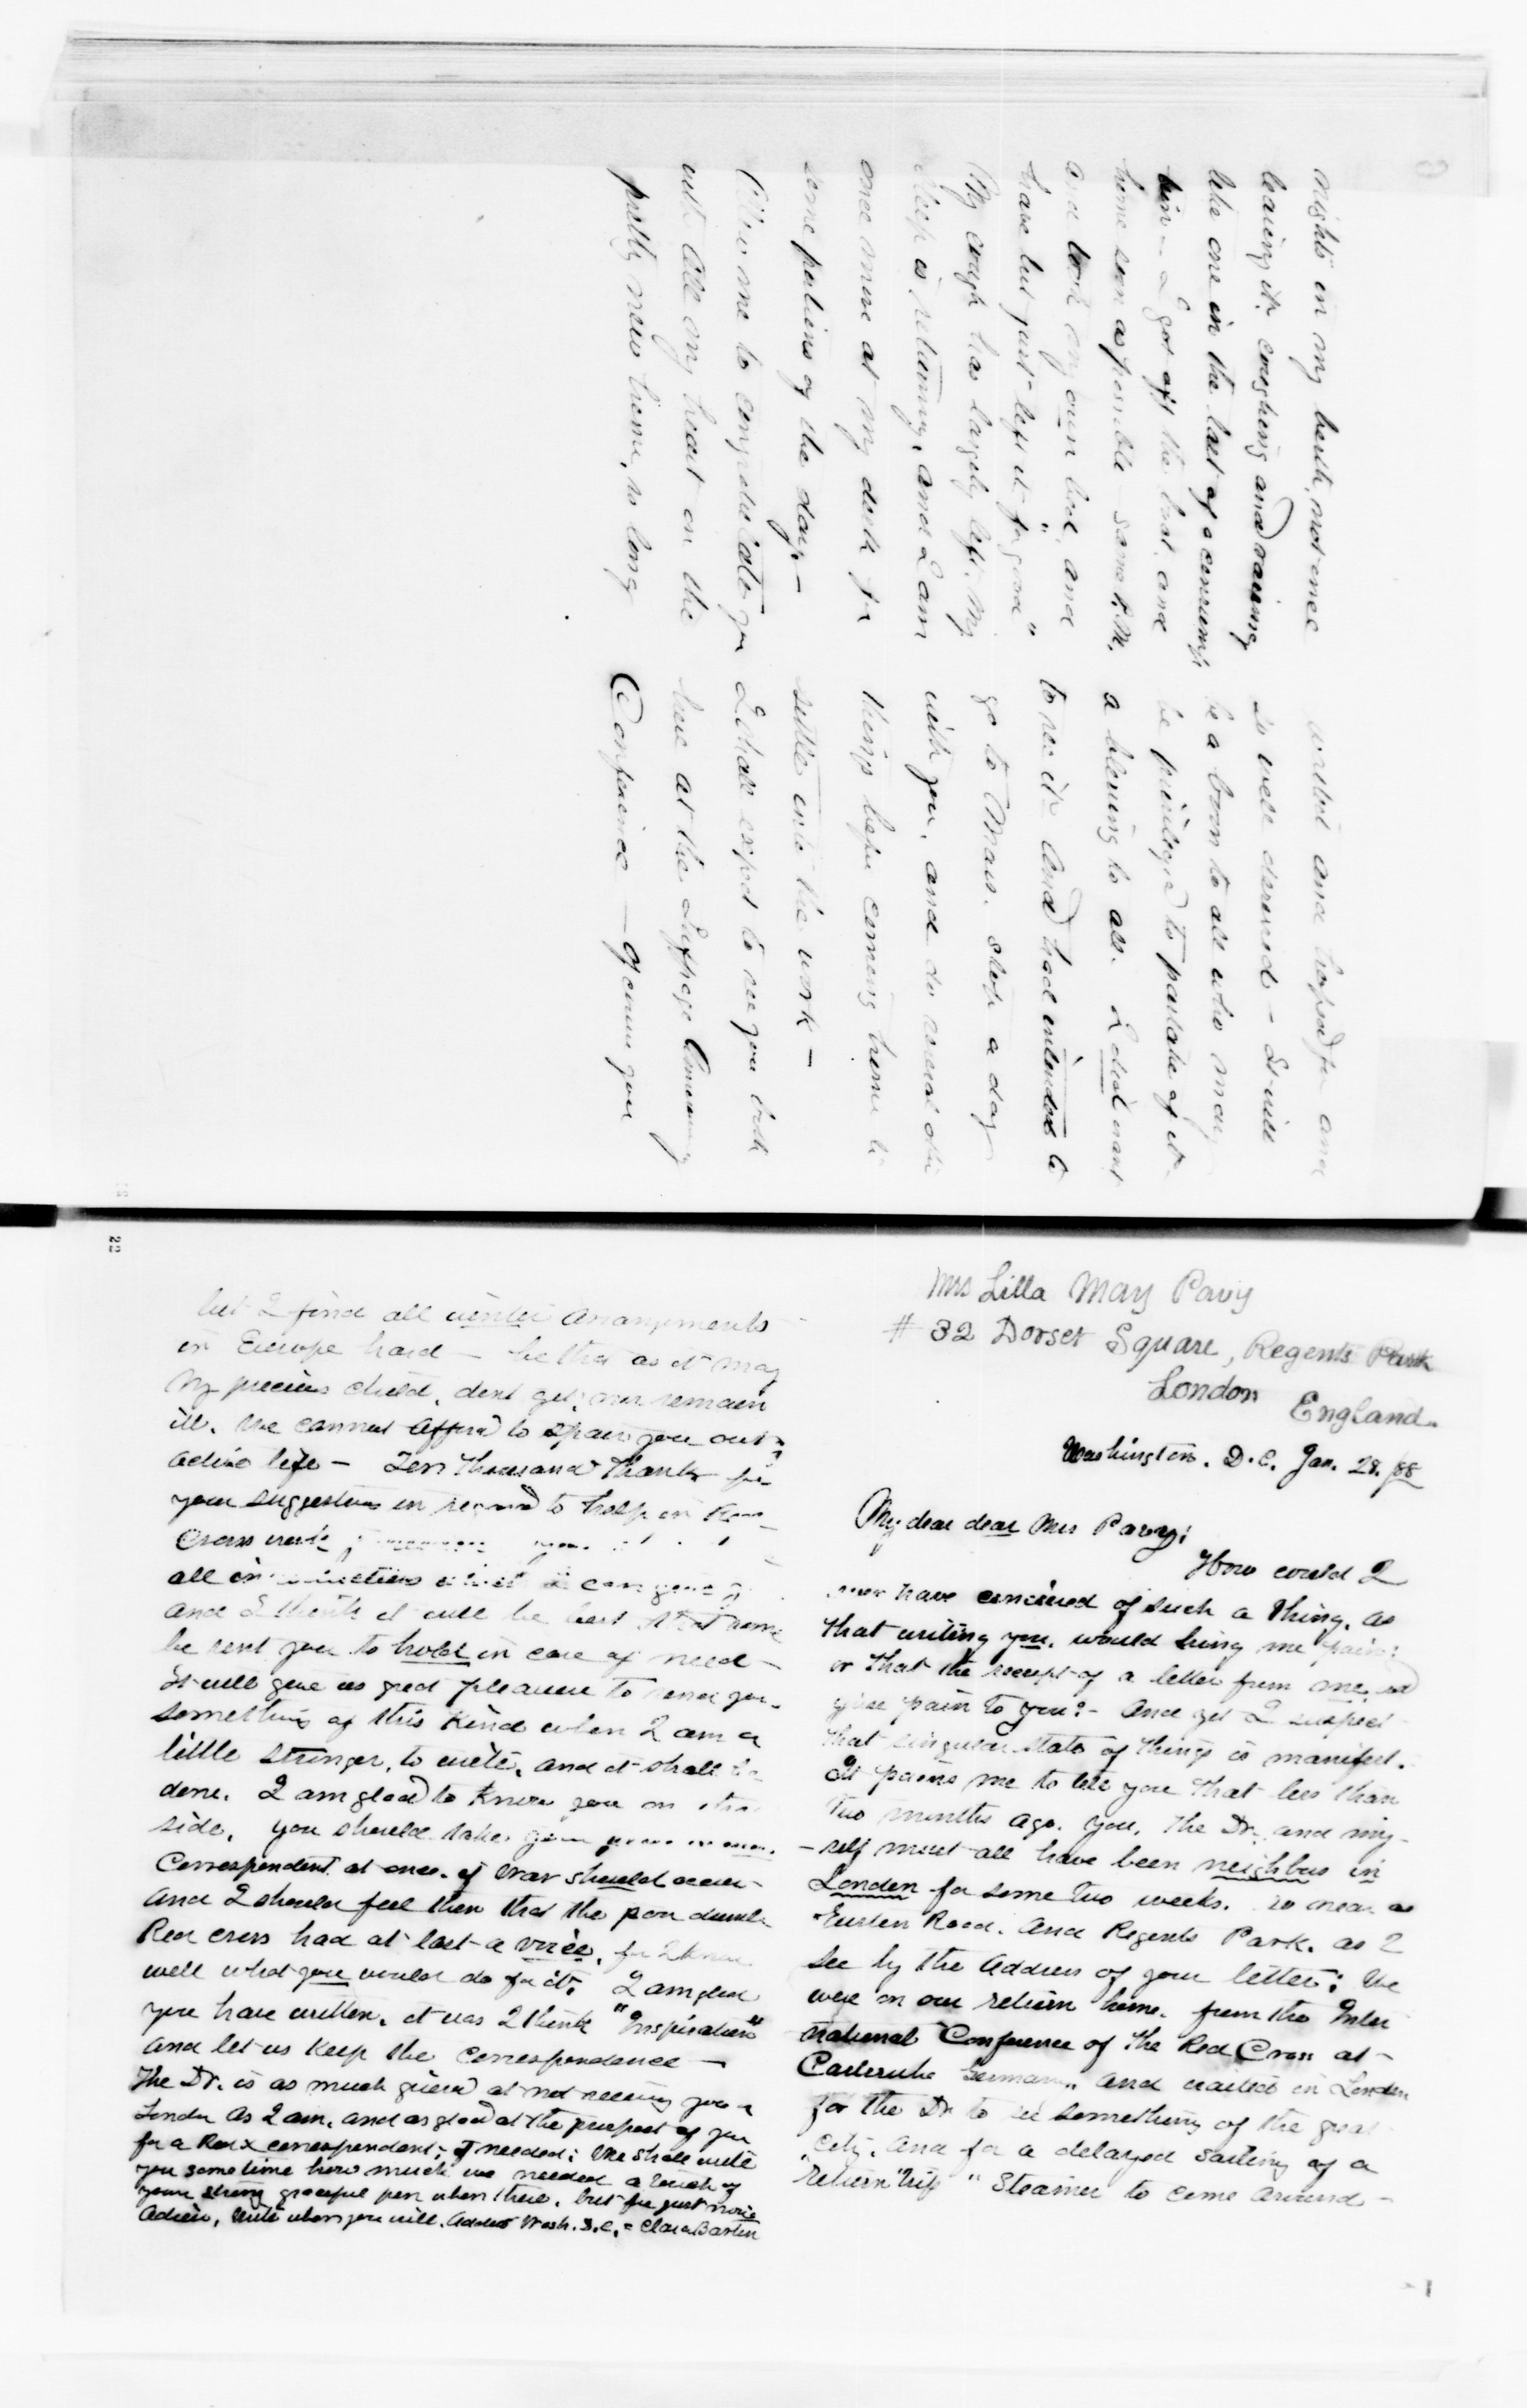 nights in my berth, not once
leaving it. coughing and raising
like one in the last of consump
tion – I got off the boat and
home soon as possible – same P.M.
and took my own bed, and
have but just left it "for good"
My cough has largely left. My
sleep is returning, and I am
once more at my desk for
some portions of the day –
Allow me to congratulate you
with all my heart on the
pretty new home, so long
and hoped for and
so well deserved – It will
be a boon to all who may
be privileged to partake of it
a blessing to all. I did want
to see it and had intended to
go to Mass. stop a day
with you, and do several other
things before coming home to
settle into the work –
I shall expect to see you both
here at the Suffrage Anniversary
Conference – of course you
22
but I find all winter arrangements
in Europe hard – be that as it may
My precious child, dont get, nor remain
ill. We cannot afford to spare you out of
active life – Ten thousand thanks for
your suggestions in regard to help in Red
Cross work
all in
and I think it will be best that some
be sent you to hold in case of need –
It will give us great pleasure to send you
something of this kind when I am a
little stronger, to write, and it shall be
done. I am glad to know you on that
side. You should take your
Correspondent at once. if War should occur –
And I should feel then that the poor dumb
Red cross had at last a voice. for I know
well what you would do for it. I am glad
you have written. it was I think "Inspiration"
and let us keep the correspondence –
The Dr. is as much grieved at not seeing you in
London as I am. and as glad at the prospect of you
for a Red x correspondent; if needed: We shall write
you some time how much we needed a touch of
your strong graceful pen when there. but for just now
Adieu, Write when you will. Address Wash. D.C. = Clara Barton
Mrs Lilla May Pavy
# 32 Dorset Square, Regents Park
London
England.
Washington. D.C. Jan. 28. /88
My dear dear Mrs Pavy:
How could I
ever have conceived of such a thing, as
that writing you, would bring me pain:
or that the receipt of a letter from me, wd
give pain to you: – And yet I suspect
that singular state of things is manifest.
It pains me to tell you that less than
two months ago. You, the Dr. and my-
-self must all have been neighbors in
London for some two weeks. so near as
Euston Road. and Regents Park. as I
see by the Address of your letter: We
were on our return home. from the Inter
national Conference of the Red Cross at –
Carlsruhe Germany. and waited in London
for the Dr to see something of the great
City. and for a delayed sailing of a
"return trip" Steamer to come around –